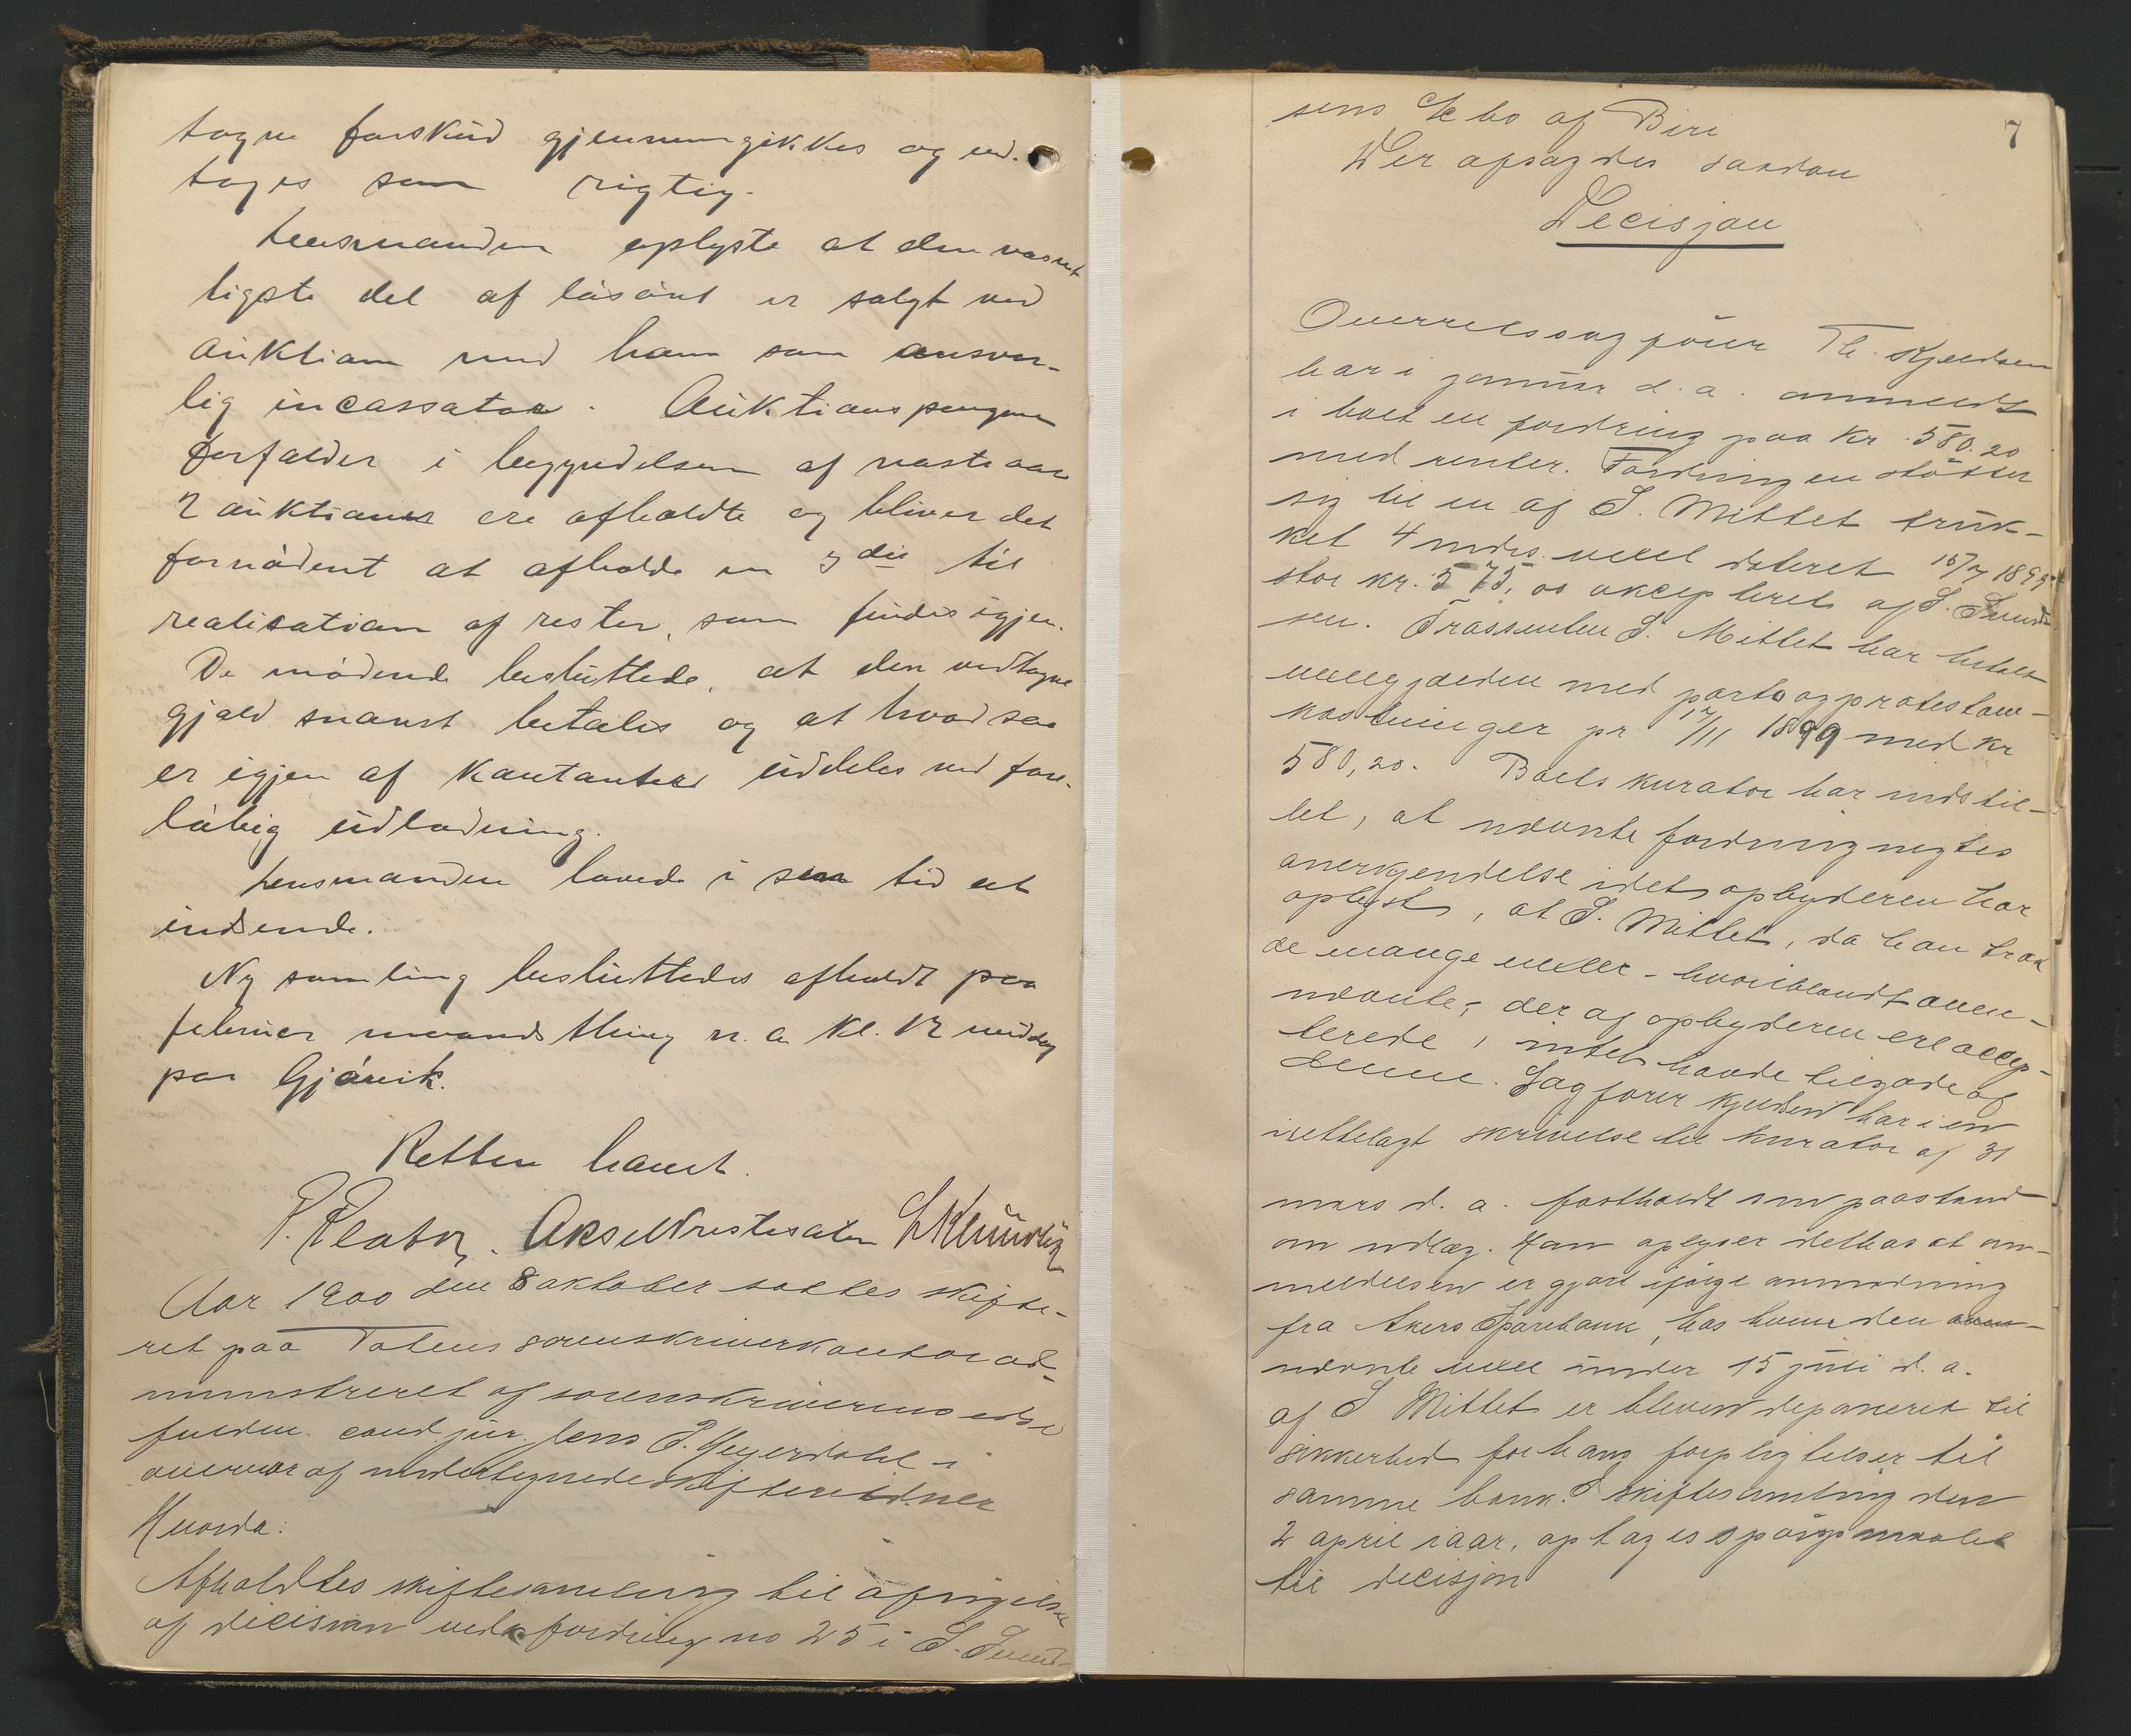 tagne forskud gjennemgikkes og ved-
toges som rigtig.
Lensmanden oplyste at den væsent
ligste del af løsøret er solgt ved
auktion med ham som ansvar-
lig incassator. Auktionspengene
forfalder i begyndelsen af næste aar
2 auktioner ere afholdte og bliver det
fornødent at afholde en 3die til
realisation af rester, som findes igjen.
De mødende besluttede, at den vedtagne
gjæld snarest betales og at hvad saa
er igjen af kontanter uddeles ved fore-
løbig udlodning.
Lensmanden lovede i sin tid at
indsende.
Ny samling besluttedes afholdt paa
februar maanedsthing n. a. kl. 12 middag
paa Gjøvik.
Retten hævet.
Aar 1900 den 8 oktober sattes skifte-
ret paa Totens sorenskriverkontor ad-
ministreret af sorenskriverens edsv
fuldm. cand. jur. Jens P. Heyerdahl i
overvær af undertegnede skifteretsvidner
Hvorda:
Afholdtes skiftesamling til afsigelse
af decision vedk fordring no 25 i S. Svend-
7
sens k bo af Biri
Der afsagdes saadan
Decisjon
Overretssagfører Th. Kjeldsen
har i januar d. a. anmeldt
i boet en fordring paa kr. 580.20
med renter. Fordringen støtter
sig til en af S. Mittet truk-
ket 4 mdrs. vexel dateret 15/7 1899
stor kr. 575,00 akcepteret af S. Svend
sen. Trassenten S. Mittet har betalt
vexelgjælden med porto og protestom-
kostninger pr 17/11 1899 med kr
580,20. Boets kurator har indstil-
let, at nævnte fordring negtes
anerkjendelse idet opbyderen har
oplyst, at S. Mittet, da han trak
de mange vexler - hvoriblandt oven-
nævnte, - der af opbyderen ere accep-
terede, intet havde tilgode af
denne. Sagfører Kjeldsen har i en
irettelagt skrivelse til kurator af 31
mars d. a. fastholdt sin paastand
om udlæg. Han oplyser derhos at an-
meldelsen er gjort ifølge anmodning
fra Akers Sparebank, hos hvem den oven-
nævnte vexel under 15 juli d. a.
af S Mittet er bleven deponeret til
sikkerhed for hans forpligtelser til
samme bank. I skiftesamling den
2 april iaar, optoges spørgsmaalet
til decisjon